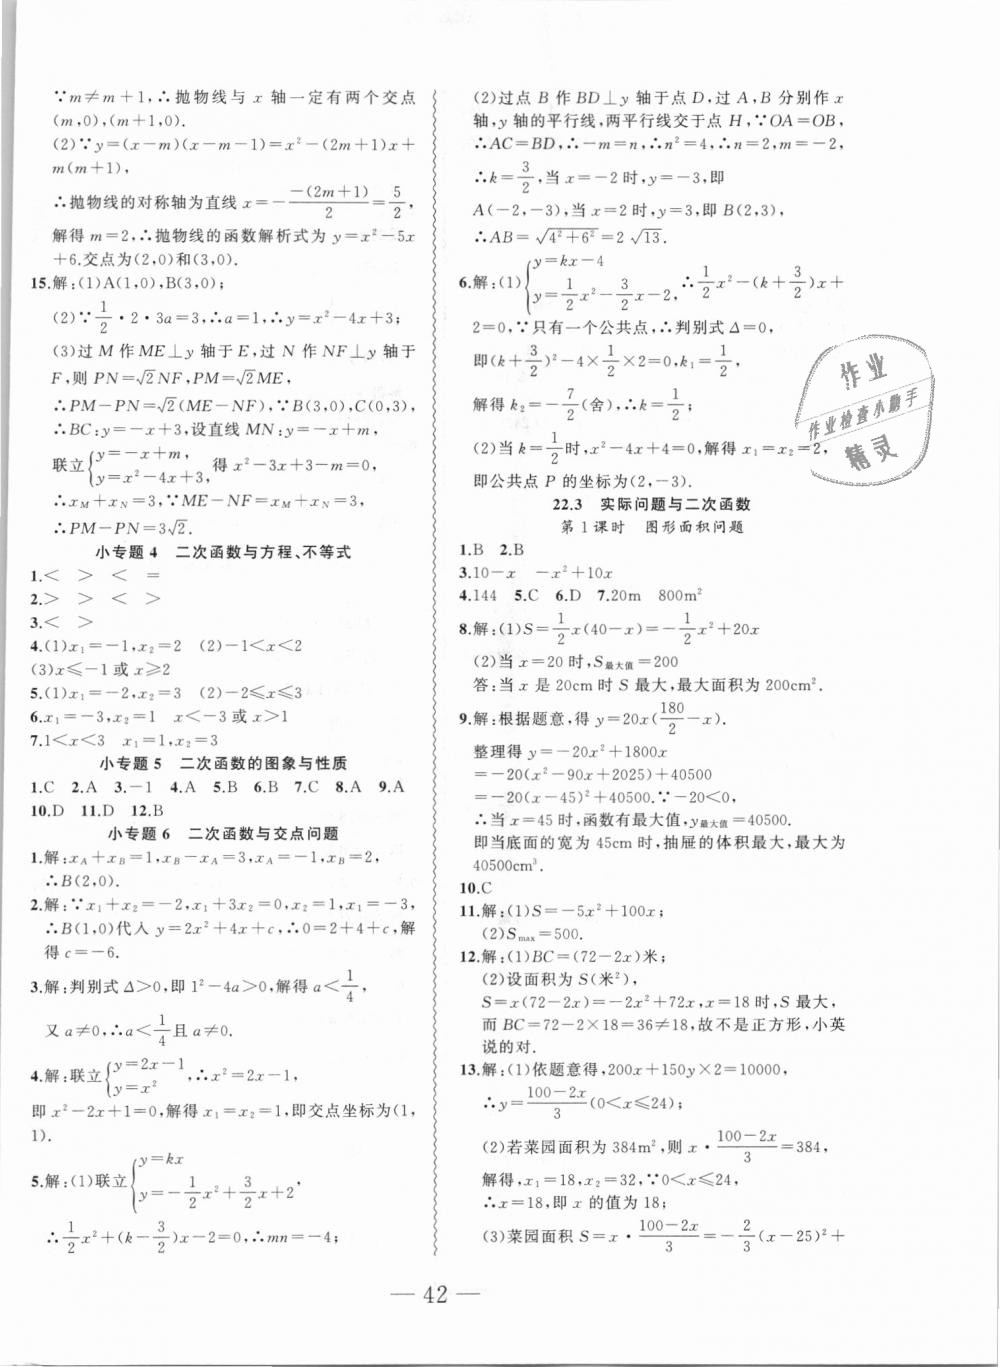 ∵m≠m+1,∴抛物线与 x 轴一定有两个交点
(m,0),(m+1,0).
(2)∵y=(x-m)(x-m-1)=x²-(2m+1)x+
m(m+1),
∴抛物线的对称轴为直线 x=-\frac{-(2m+1)}{2}=\frac{5}{2},
解得 m=2,∴抛物线的函数解析式为 y=x²-5x
+6.交点为(2,0)和(3,0).
15.解:(1)A(1,0),B(3,0);
(2)∵\frac{1}{2}·2·3a=3,∴a=1,∴y=x²-4x+3;
(3)过 M 作 ME⊥y 轴于 E,过 N 作 NF⊥y 轴于
F,则 PN=√2NF,PM=√2ME,
∴PM-PN=√2(ME-NF),∵B(3,0),C(0,3),
∴BC:y=-x+3,设直线 MN:y=-x+m,
联立{y=-x+m, y=x²-4x+3, 得 x²-3x+3-m=0,
∴x_M+x_N=3,∵ME-NF=x_M+x_N=3,
∴PM-PN=3√2.
小专题 4 二次函数与方程、不等式
1.< > < =
2.> > < >
3.< >
4.(1)x₁=-1,x₂=2 (2)-1<x<2
(3)x≤-1 或 x≥2
5.(1)x₁=-2,x₂=3 (2)-2≤x≤3
6.x₁=-3,x₂=1 x<-3 或 x>1
7.1<x<3 x₁=1,x₂=3
小专题 5 二次函数的图象与性质
1.C 2.A 3.-1 4.A 5.B 6.B 7.C 8.A 9.A
10.D 11.D 12.B
小专题 6 二次函数与交点问题
1.解:x_A+x_B=1,x_B-x_A=3,x_A=-1,x_B=2,
∴B(2,0).
2.解:∵x₁+x₂=-2,x₁+3x₂=0,x₂=1,x₁=-3,
∴B(1,0)代入 y=2x²+4x+c,∴0=2+4+c,解
得 c=-6.
3.解:判别式 Δ>0,即 1²-4a>0,解得 a<\frac{1}{4},
又 a≠0,∴a<\frac{1}{4}且 a≠0.
4.解:联立{y=2x-1 y=x²,∴x²=2x-1,
即 x²-2x+1=0,解得 x₁=x₂=1,即交点坐标为(1,
1).
5.解:(1)联立{y=kx y=-\frac{1}{2}x²+\frac{3}{2}x+2,
∴\frac{1}{2}x²+(k-\frac{3}{2})x-2=0,∴mn=-4;
(2)过点 B 作 BD⊥y 轴于点 D,过 A,B 分别作 x
轴,y 轴的平行线,两平行线交于点 H,∵OA=OB,
∴AC=BD,∴-m=n,∴n²=4,∴n=2,m=-2,
∴k=\frac{3}{2},当 x=-2 时,y=-3,即
A(-2,-3),当 x=2 时,y=3,即 B(2,3),
∴AB=√(4²+6²)=2√13.
6.解:(1){y=kx-4 y=\frac{1}{2}x²-\frac{3}{2}x-2, ∴\frac{1}{2}x²-(k+\frac{3}{2})x+
2=0,∵只有一个公共点,∴判别式 Δ=0,
即(k+\frac{3}{2})²-4×\frac{1}{2}×2=0,k₁=\frac{1}{2},
解得 k₂=-\frac{7}{2}(舍),∴k=\frac{1}{2};
(2)当 k=\frac{1}{2}时,x²-4x+4=0,解得 x₁=x₂=2,
即公共点 P 的坐标为(2,-3).
22.3 实际问题与二次函数
第 1 课时 图形面积问题
1.B 2.B
3.10-x -x²+10x
4.144 5.C 6.D 7.20m 800m²
8.解:(1)S=\frac{1}{2}x(40-x)=-\frac{1}{2}x²+20x
(2)当 x=20 时,S最大值=200
答:当 x 是 20cm 时 S 最大,最大面积为 200cm².
9.解:根据题意,得 y=20x(\frac{180}{2}-x).
整理得 y=-20x²+1800x
=-20(x²-90x+2025)+40500
=-20(x-45)²+40500.∵-20<0,
∴当 x=45 时,函数有最大值,y最大值=40500.
即当底面的宽为 45cm 时,抽屉的体积最大,最大为
40500cm³.
10.C
11.解:(1)S=-5x²+100x;
(2)S_max=500.
12.解:(1)BC=(72-2x)米;
(2)设面积为 S(米²),
S=x(72-2x)=-2x²+72x,x=18 时,S 最大,
而 BC=72-2×18=36≠18,故不是正方形,小英
说的对.
13.解:(1)依题意得,200x+150y×2=10000,
∴y=\frac{100-2x}{3}(0<x≤24);
(2)若菜园面积为 384m²,则 x·\frac{100-2x}{3}=384,
解得,x₁=18,x₂=32,∵0<x≤24,
∴x=18,即 x 的值为 18;
(3)菜园面积 S=x·\frac{100-2x}{3}=-\frac{2}{3}(x-25)²+
作业
作业检查小助手
精灵
— 42 —